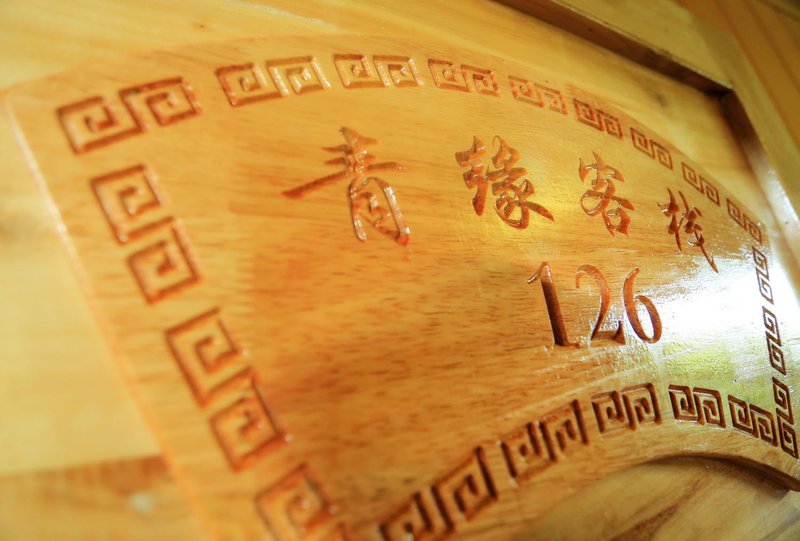 青缘客栈
126